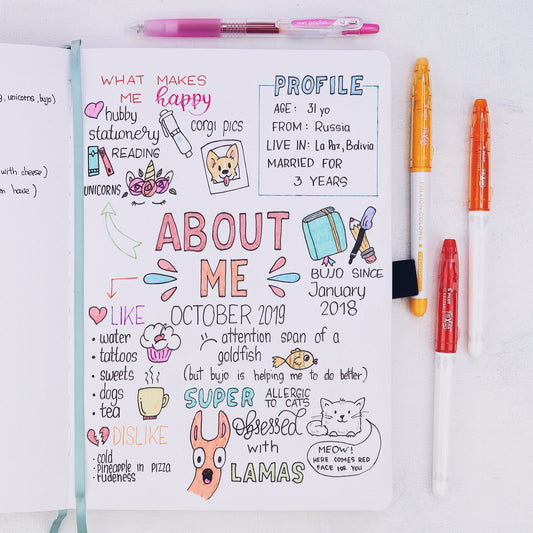 , unicorns, bujo)
with cheese)
n have)
WHAT MAKES
ME happy
hubby
stationery
corgi pics
READING
UNICORNS
PROFILE
AGE: 31 yo
FROM: Russia
LIVE IN: La Paz, Bolivia
MARRIED FOR
3 YEARS
ABOUT
ME
BUJO SINCE
January
2018
OCTOBER 2019
LIKE
• water
• tattoos
• sweets
• dogs
• tea
attention span of a
goldfish
(but bujo is helping me to do better)
SUPER
ALLERGIC
TO CATS
DISLIKE
• cold
• pineapple in pizza
• rudeness
Obsessed
with
LAMAS
MEOW!
HERE COMES RED
FACE FOR YOU